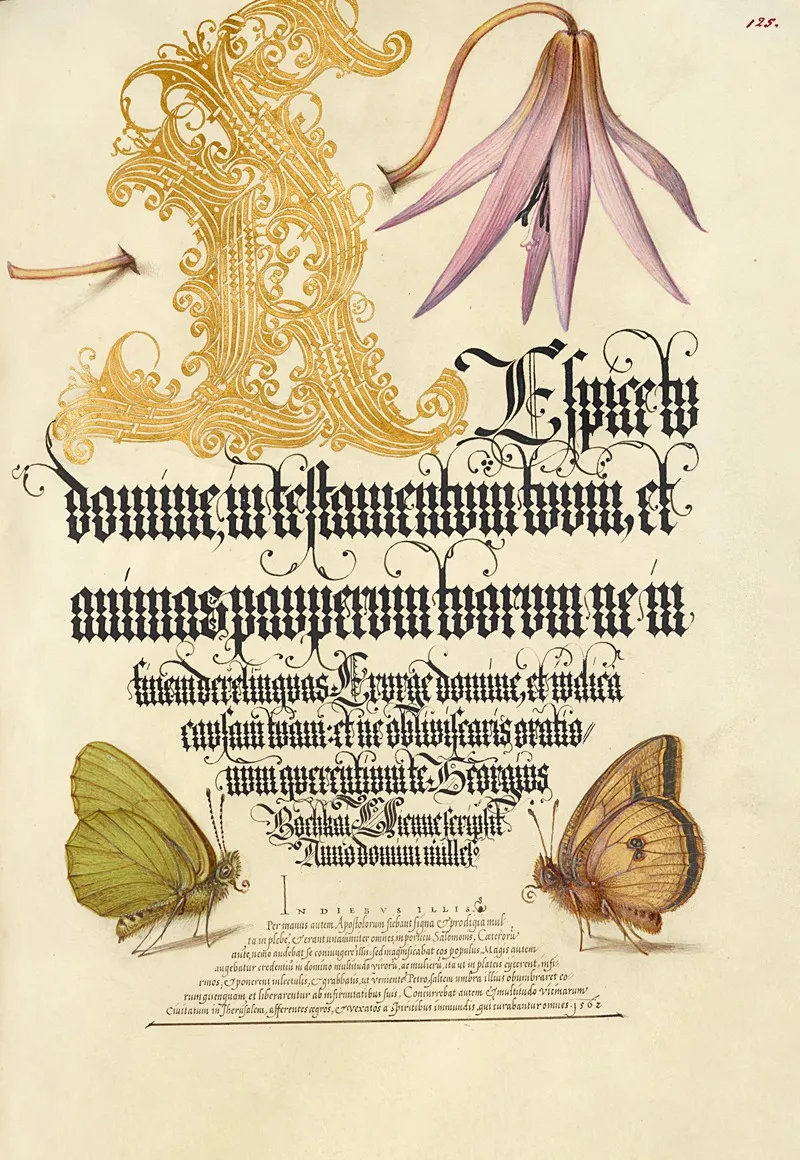 125.
REspice tu
domine, in testamentum tuum, et
animas pauperum tuorum ne in
finem derelinquas. Exurge domine, et iudica
causam tuam: et ne obliviscaris oratio//
num querentium te. Georgius
Bochkai Viennę scripsit
Anno domini mille
IN DIEBVS ILLIS
Per manus autem Apostolorum fiebant signa & prodigia mul
ta in plebe, & erant unanimiter omnes, in porticu Salomonis, Cæterorũ
autẽ, nemo audebat se coniungere illis sed magnificabat eos populus, Magis autem
augebatur credentiũ in domino multitudo virorũ, ac mulierũ, ita ut in plateis eijcerent, infi-
rmos, & ponerent in lectulis, & grabbatis, ut veniente Petro, saltem umbra illius obumbraret eo
rum quenquam, et liberarentur ab infirmitatibus suis, Concurrebat autem & multitudo vicinarum
Ciuitatum in Jherusalem, afferentes ægros, & vexatos a Spiritibus inmundis, qui curabantur omnes. 1562